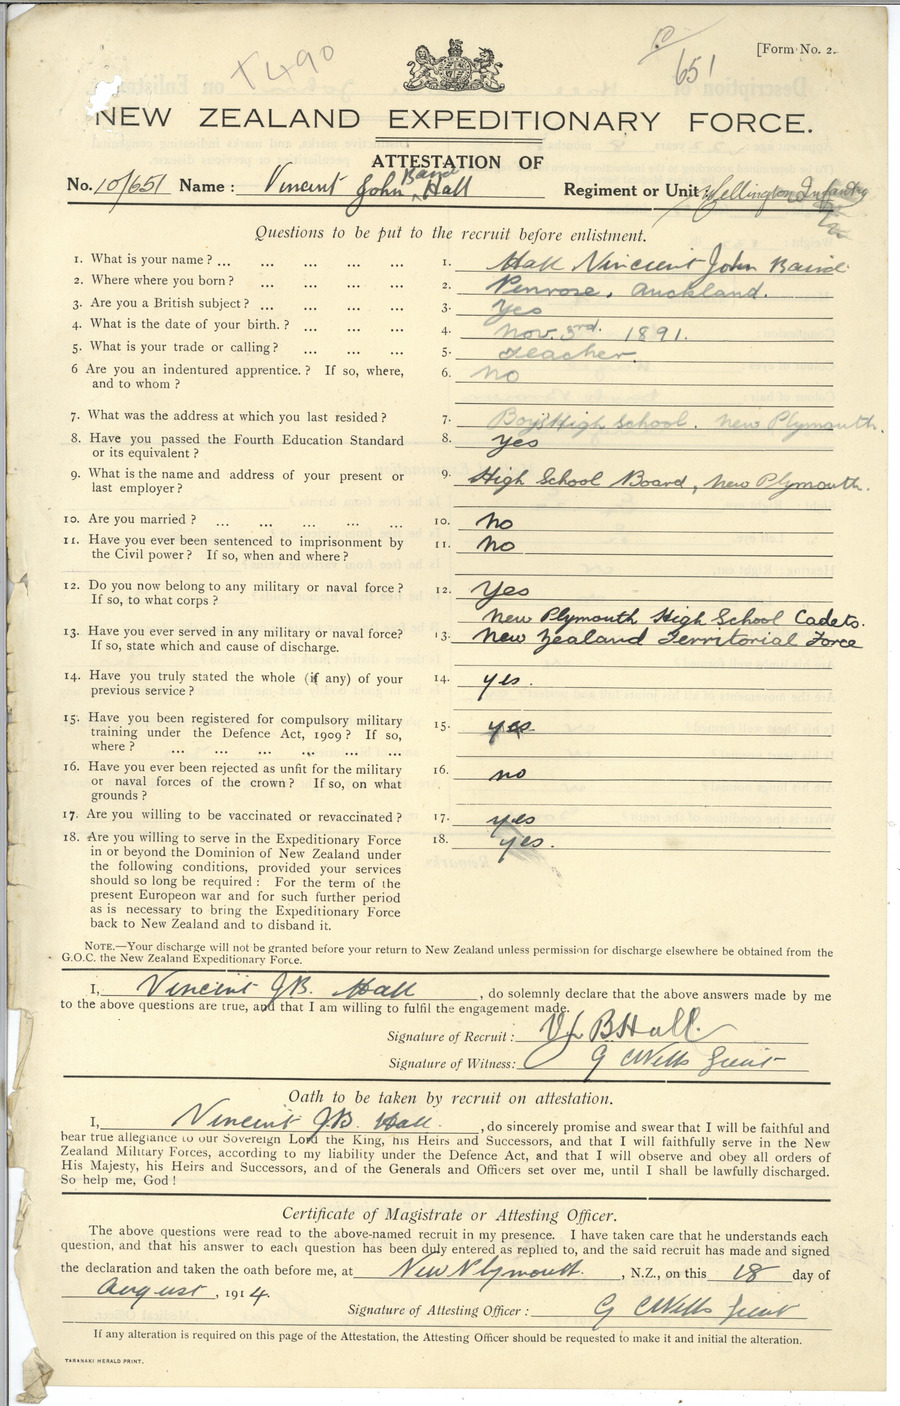 T490
651
[Form No. 2.
NEW ZEALAND EXPEDITIONARY FORCE.
ATTESTATION OF
No. 10/651 Name : Vincent John Baird Hall Regiment or Unit : Wellington Infantry
Questions to be put to the recruit before enlistment.
1. What is your name ? ... ... ... ... 1. Hall Vincent John Baird
2. Where where you born ? ... ... ... ... 2. Penrose, Auckland.
3. Are you a British subject ? ... ... ... ... 3. Yes
4. What is the date of your birth. ? ... ... ... 4. Nov. 3rd. 1891.
5. What is your trade or calling ? ... ... ... 5. teacher.
6 Are you an indentured apprentice. ? If so, where, 6. no
and to whom ?
7. What was the address at which you last resided ? 7. Boys High School. New Plymouth.
8. Have you passed the Fourth Education Standard 8. yes
or its equivalent ?
9. What is the name and address of your present or 9. High School Board, New Plymouth.
last employer ?
10. Are you married ? ... ... ... ... ... 10. no
11. Have you ever been sentenced to imprisonment by 11. no
the Civil power ? If so, when and where ?
12. Do you now belong to any military or naval force ? 12. yes
If so, to what corps ? New Plymouth High School Cadets.
13. Have you ever served in any military or naval force? 13. New Zealand Territorial Force
If so, state which and cause of discharge.
14. Have you truly stated the whole (if any) of your 14. yes.
previous service ?
15. Have you been registered for compulsory military 15. yes
training under the Defence Act, 1909 ? If so,
where ? ... ... ... ... ... ...
16. Have you ever been rejected as unfit for the military 16. no
or naval forces of the crown ? If so, on what
grounds ?
17. Are you willing to be vaccinated or revaccinated ? 17. yes
18. Are you willing to serve in the Expeditionary Force 18. yes.
in or beyond the Dominion of New Zealand under
the following conditions, provided your services
should so long be required : For the term of the
present European war and for such further period
as is necessary to bring the Expeditionary Force
back to New Zealand and to disband it.
NOTE.—Your discharge will not be granted before your return to New Zealand unless permission for discharge elsewhere be obtained from the
G.O.C. the New Zealand Expeditionary Force.
I, Vincent J.B. Hall , do solemnly declare that the above answers made by me
to the above questions are true, and that I am willing to fulfil the engagement made.
Signature of Recruit : V J B Hall.
Signature of Witness: G C Wells Lieut
Oath to be taken by recruit on attestation.
I, Vincent J.B. Hall. , do sincerely promise and swear that I will be faithful and
bear true allegiance to our Sovereign Lord the King, his Heirs and Successors, and that I will faithfully serve in the New
Zealand Military Forces, according to my liability under the Defence Act, and that I will observe and obey all orders of
His Majesty, his Heirs and Successors, and of the Generals and Officers set over me, until I shall be lawfully discharged.
So help me, God !
Certificate of Magistrate or Attesting Officer.
The above questions were read to the above-named recruit in my presence. I have taken care that he understands each
question, and that his answer to each question has been duly entered as replied to, and the said recruit has made and signed
the declaration and taken the oath before me, at New Plymouth. , N.Z., on this 18 day of
August , 1914.
Signature of Attesting Officer : G C Wells Lieut
If any alteration is required on this page of the Attestation, the Attesting Officer should be requested to make it and initial the alteration.
TARANAKI HERALD PRINT.